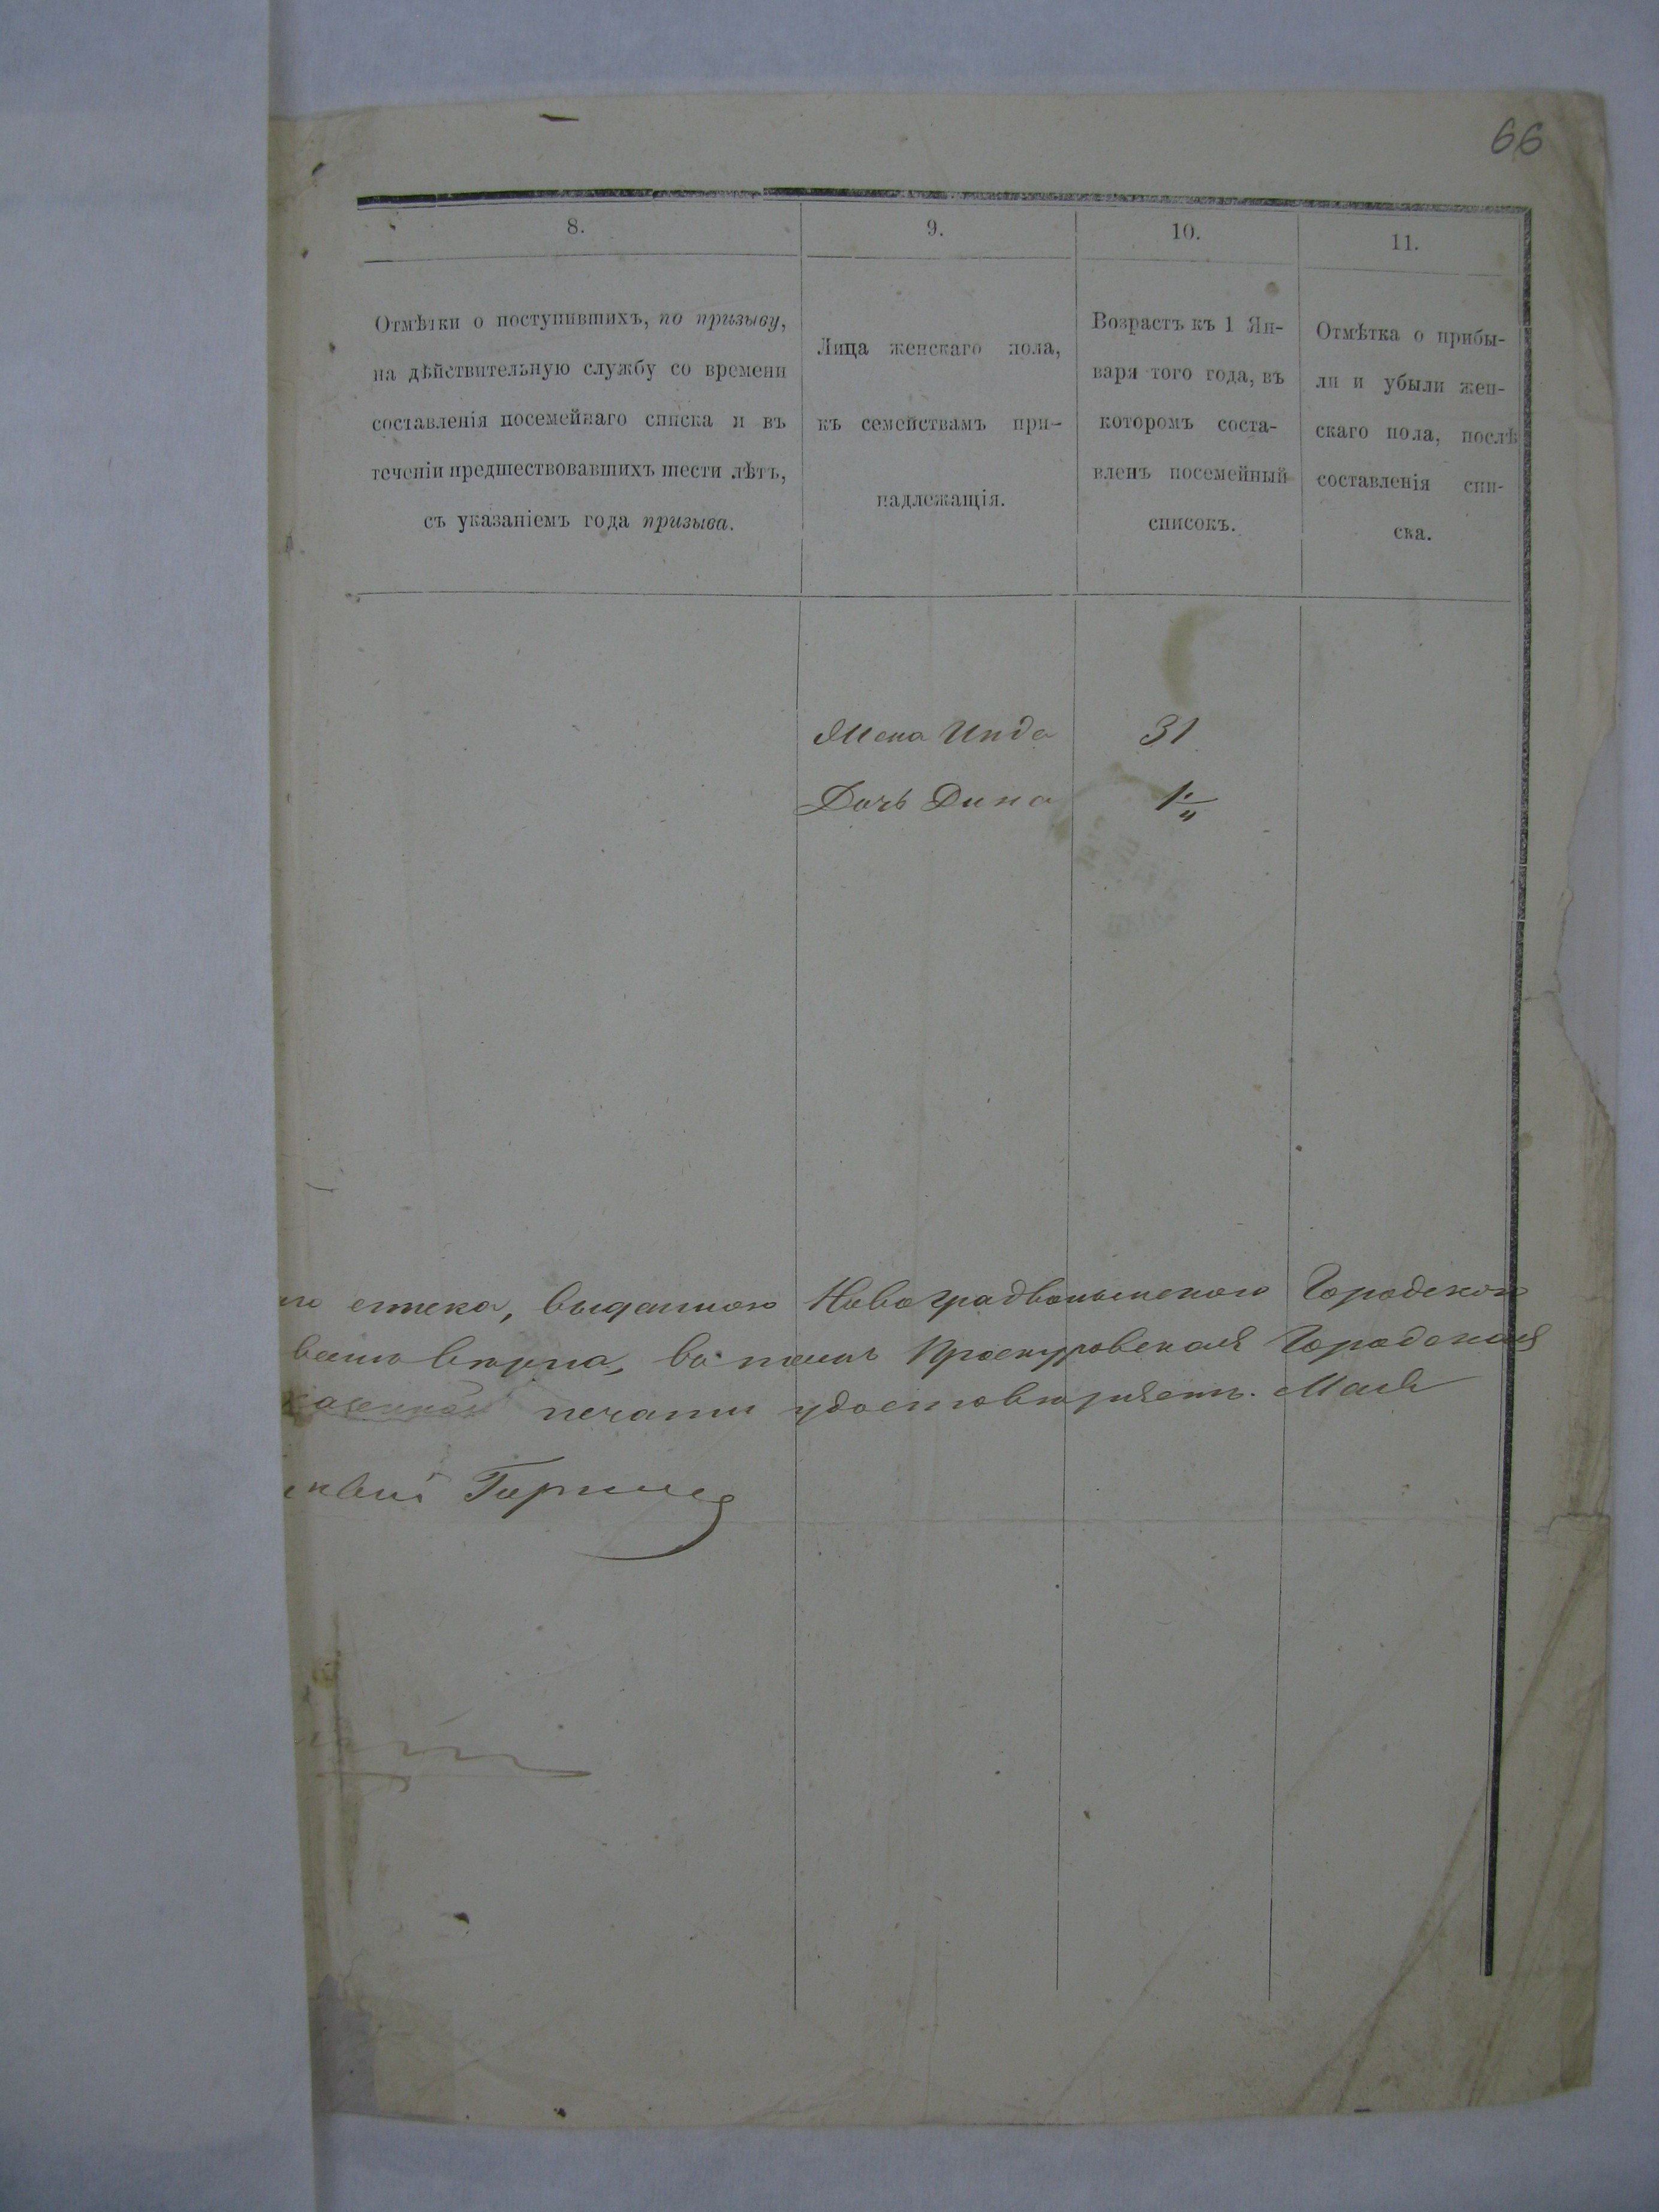 66
8.
9.
10.
11.
Отмѣтки о поступившихъ, по призыву,
на дѣйствительную службу со времени
составленія посемейнаго списка и въ
теченіи предшествовавшихъ шести лѣтъ,
съ указаніемъ года призыва.
Лица женскаго пола,
къ семействамъ при-
надлежащія.
Возрастъ къ 1 Ян-
варя того года, въ
которомъ соста-
вленъ посемейный
списокъ.
Отмѣтка о прибы-
ли и убыли жен-
скаго пола, послѣ
составленія спи-
ска.
Жена Инда 31
Дочь Дина
списка, выданною Новоградволынскою Городскою
вѣрна, въ томъ Проскуровская Городская
казенной печати удостовѣряетъ. Мая